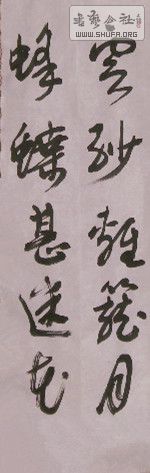 書藝公社
WWW.SHUFA.ORG
籠月
蜂蝶甚迷花